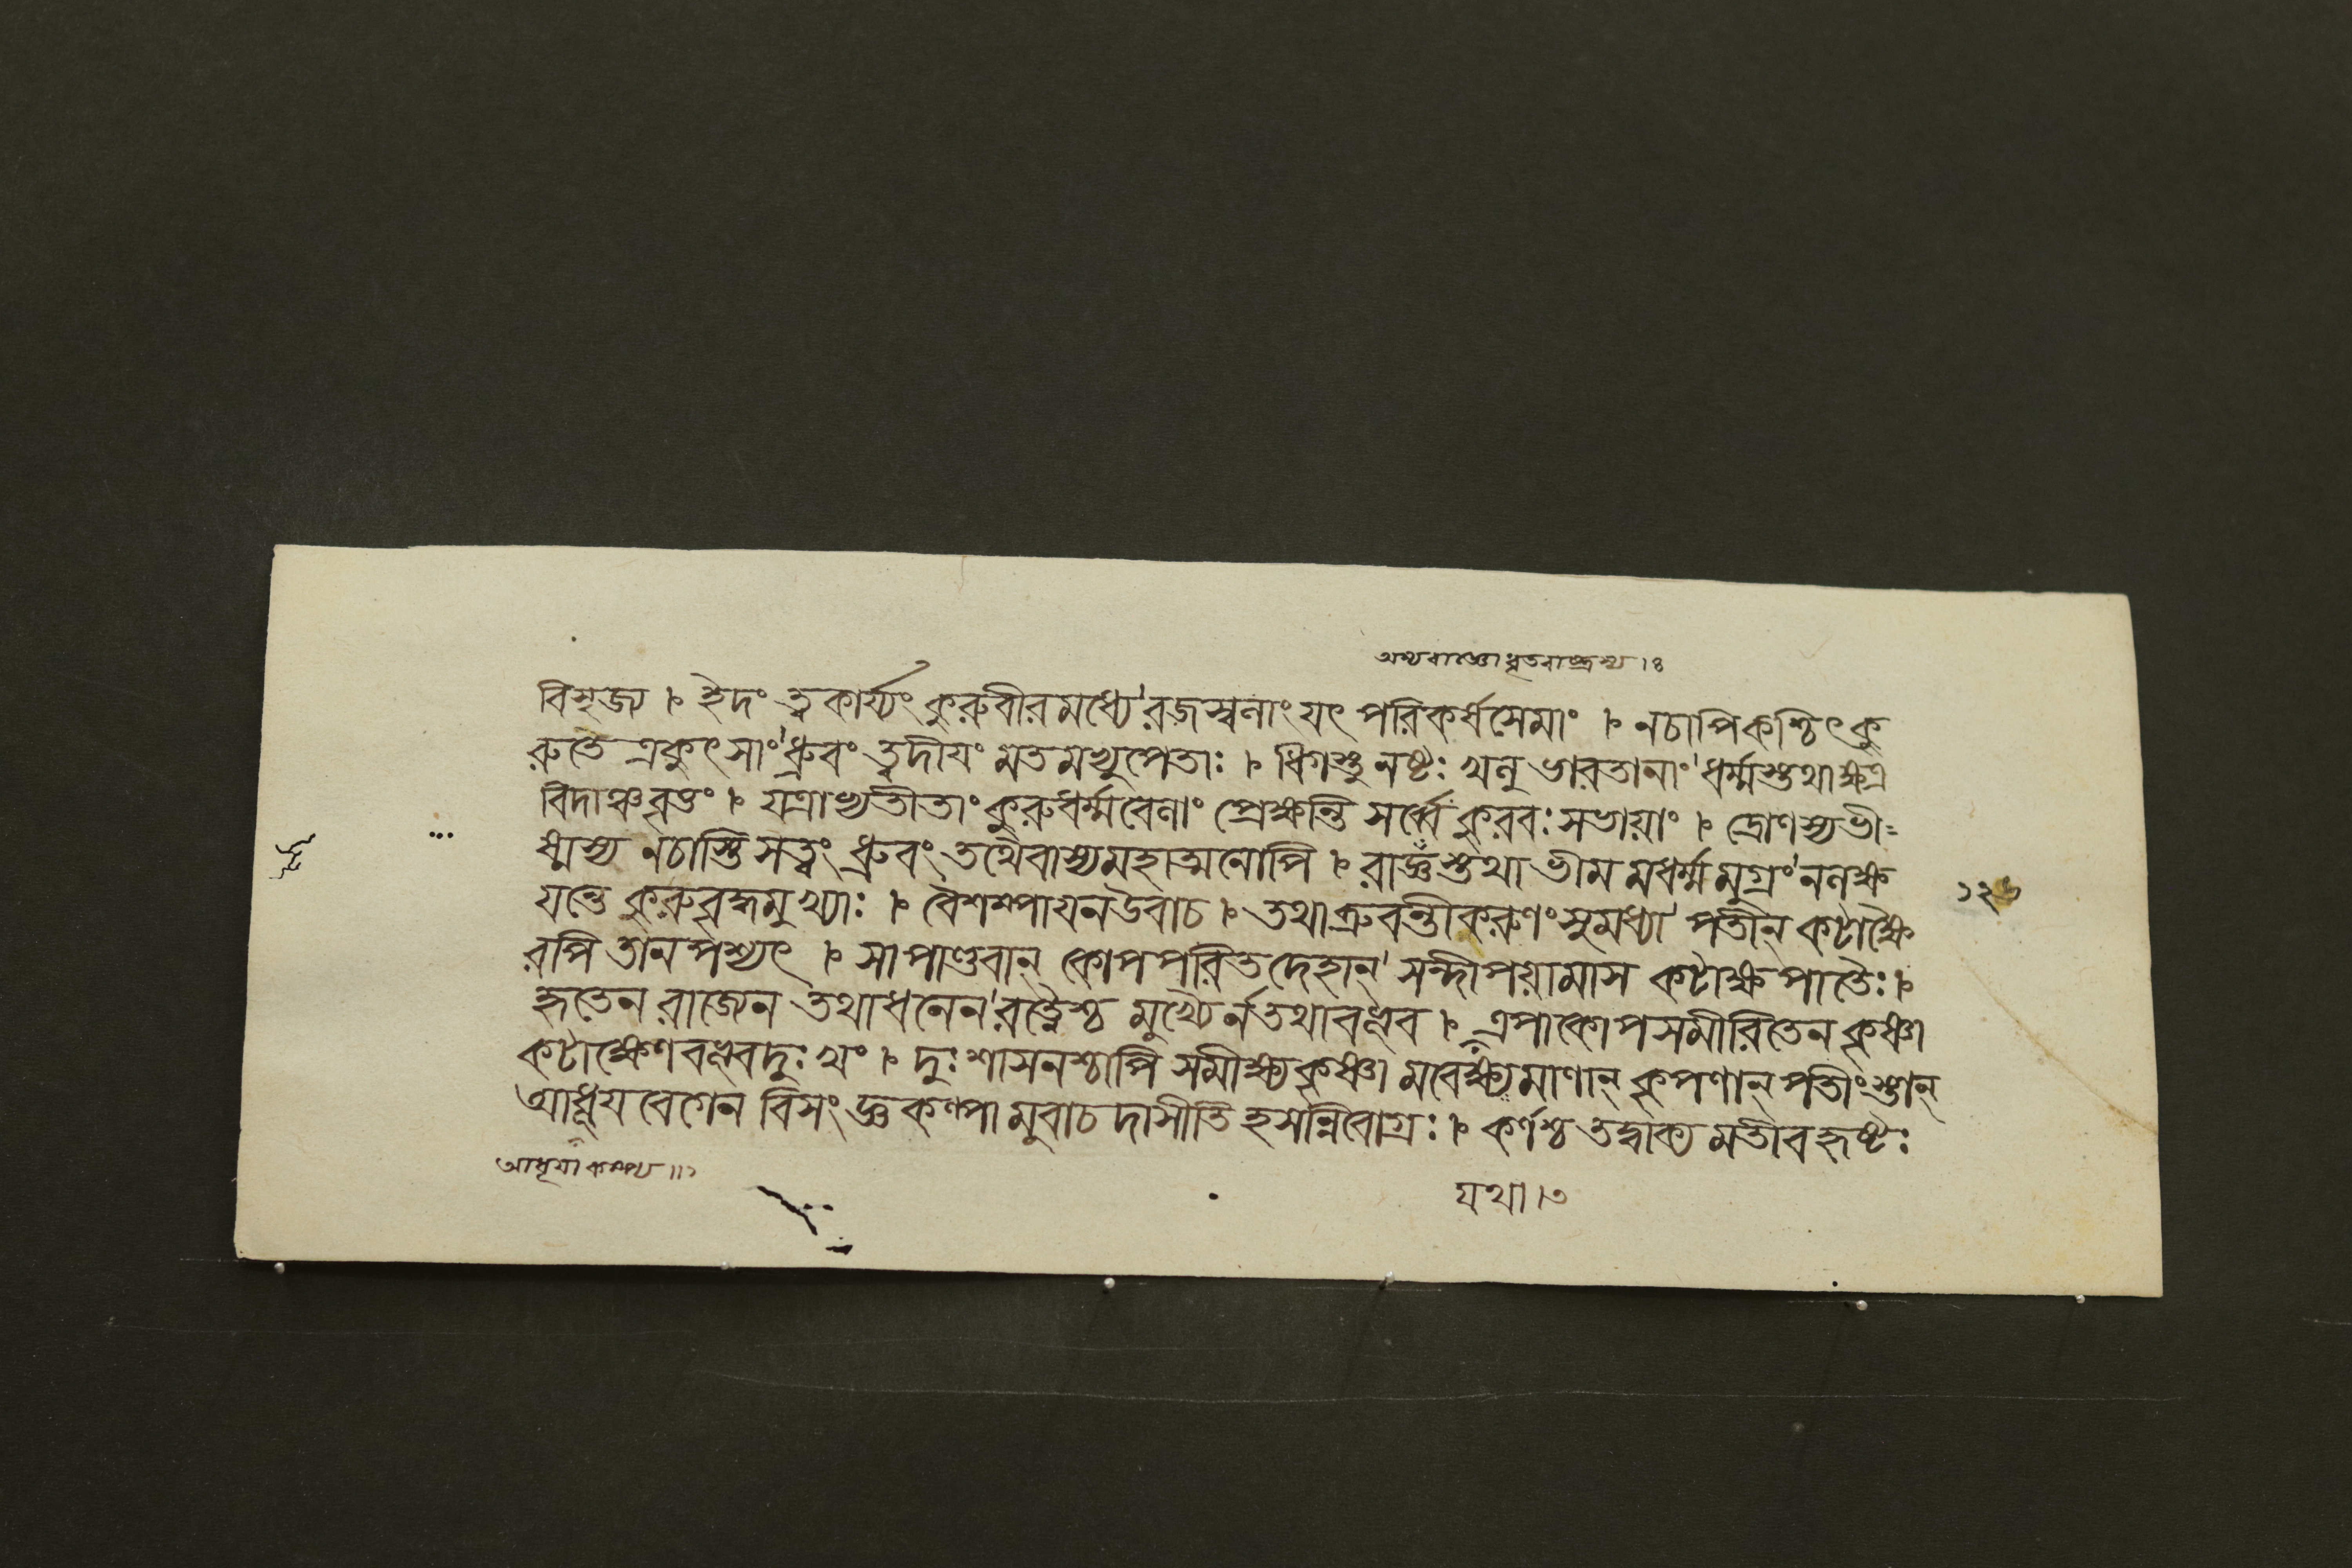 অস্য রাজ্ঞো ধৃতরাষ্ট্রস্য ।৪
বিসৃজ্য । ইদং ত্বকার্য্যং কুরুবীরমধ্যে'রজস্বনাং যৎ পরিকর্ষসেমাং । নচাপিকশ্চিৎকু
রুতে ত্রকুৎসাং'ধ্রুবং ত্বদীয়ং মতমভ্যুপেতাঃ । ধিগস্তু নষ্টঃ খনু ভারতানাং'ধর্ম্মস্তথাক্ষত্র
বিদাঞ্চবৃত্তং । যত্রাভ্যতীতাং কুরুধর্ম্মবেনাং প্রেক্ষন্তি সর্ব্বে কুরবঃ সভায়াং । দ্রোণস্যভী=
ষ্মস্য নচাস্তি সত্ত্বং ধ্রুবং তথৈবাস্যমহাত্মনোপি । রাজ্ঞস্তথা ভীমমধর্ম্মমুগ্রং'ননক্ষ
যন্তে কুরুবৃদ্ধমুখ্যাঃ । বৈশম্পায়নউবাচ । তথাব্রুবন্তীকরুণং সুমধ্যা'পতীন্ কটাক্ষৈ
রপি তানপশ্যৎ । সাপাণ্ডবান্ কোপপরিতদেহান্'সন্দীপয়ামাস কটাক্ষপাতৈঃ ।
হৃতেন রাজ্যেন তথাধনেন'রত্নৈশ্চ মুখ্যৈর্নতথাবভূব । এপাকোপসমীরিতেন কৃষ্ণা
কটাক্ষেণবভূবদুঃখং । দুঃশাসনশ্চাপি সমীক্ষ্যকৃষ্ণা মবেক্ষ্যমাণান্ কৃপণান্ পতীংস্তান্
আধূয়বেগেন বিসংজ্ঞকল্পা মুবাচদাসীতি হসন্নিবোগ্রঃ । কর্ণশ্চ তদ্বাক্যমতীবহৃষ্টঃ
১২৬
যথা ।৩